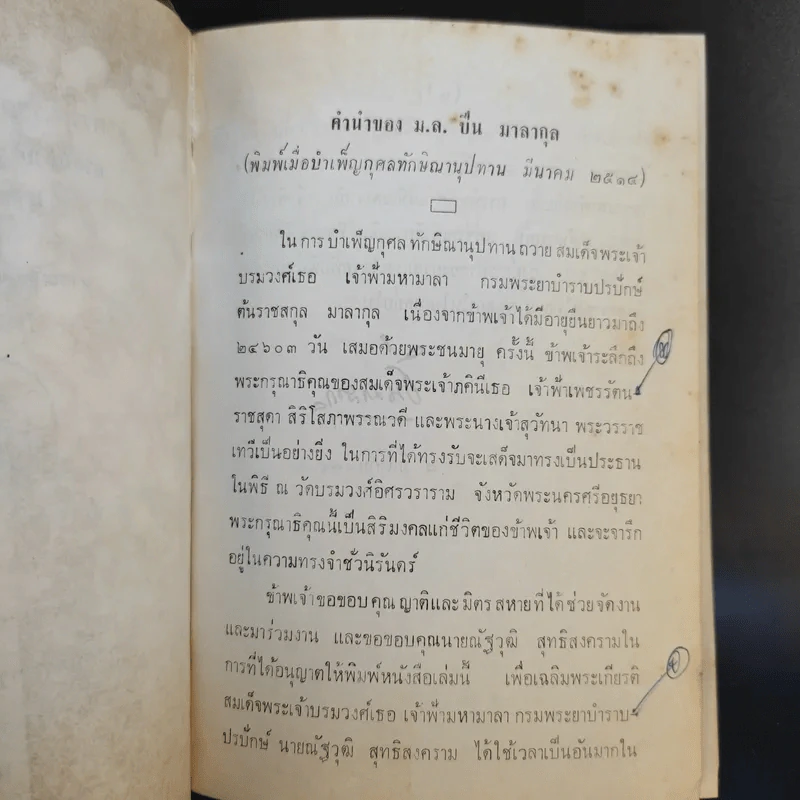 คำนำของ ม.ล. ปิ่น มาลากุล
(พิมพ์เมื่อบำเพ็ญกุศลทักษิณานุปทาน มีนาคม ๒๕๑๔)
ในการบำเพ็ญกุศลทักษิณานุปทาน ถวาย สมเด็จพระเจ้า
บรมวงศ์เธอ เจ้าฟ้ามหามาลา กรมพระยาบำราบปรปักษ์
ต้นราชสกุล มาลากุล เนื่องจากข้าพเจ้าได้มีอายุยืนยาวมาถึง
๒๔๖๐๓ วัน เสมอด้วยพระชนมายุ ครั้งนี้ ข้าพเจ้าระลึกถึง
พระกรุณาธิคุณของสมเด็จพระเจ้าภคินีเธอ เจ้าฟ้าเพชรรัตน-
ราชสุดา สิริโสภาพรรณวดี และพระนางเจ้าสุวัทนา พระวรราช
เทวีเป็นอย่างยิ่ง ในการที่ได้ทรงรับจะเสด็จมาทรงเป็นประธาน
ในพิธี ณ วัดบรมวงศ์อิศรวราราม จังหวัดพระนครศรีอยุธยา
พระกรุณาธิคุณนี้เป็นสิริมงคลแก่ชีวิตของข้าพเจ้า และจะจารึก
อยู่ในความทรงจำชั่วนิรันดร์
ข้าพเจ้าขอขอบคุณ ญาติและมิตรสหายที่ได้ช่วยจัดงาน
และมาร่วมงาน และขอขอบคุณนายณัฐวุฒิ สุทธิสงครามใน
การที่ได้อนุญาตให้พิมพ์หนังสือเล่มนี้ เพื่อเฉลิมพระเกียรติ
สมเด็จพระเจ้าบรมวงศ์เธอ เจ้าฟ้ามหามาลา กรมพระยาบำราบ-
ปรปักษ์ นายณัฐวุฒิ สุทธิสงคราม ได้ใช้เวลาเป็นอันมากใน